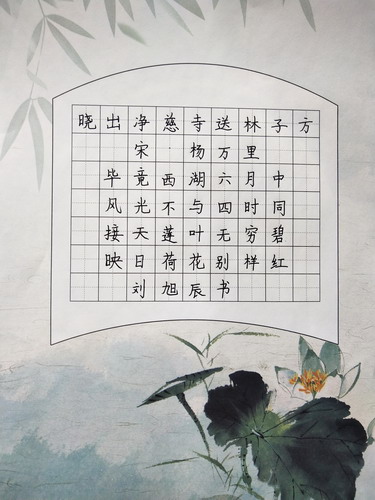 晓出净慈寺送林子方
宋·杨万里
毕竟西湖六月中
风光不与四时同
接天莲叶无穷碧
映日荷花别样红
刘旭辰书